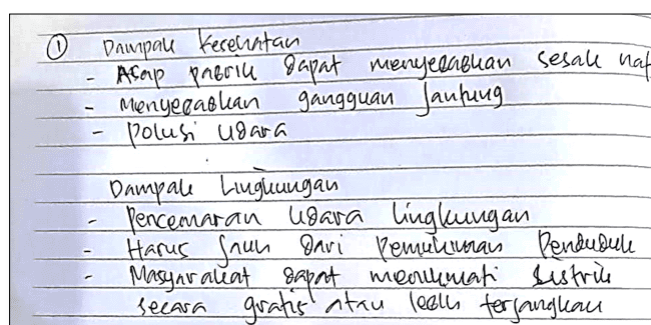 ① Dampak Kesehatan
- Asap pabrik dapat menyebabkan sesak naf
- Menyebabkan gangguan Jantung
- Polusi udara
Dampak Lingkungan
- Pencemaran udara lingkungan
- Harus Jauh dari Pemukiman Penduduk
- Masyarakat dapat menikmati Listrik
secara gratis atau lebih terjangkau